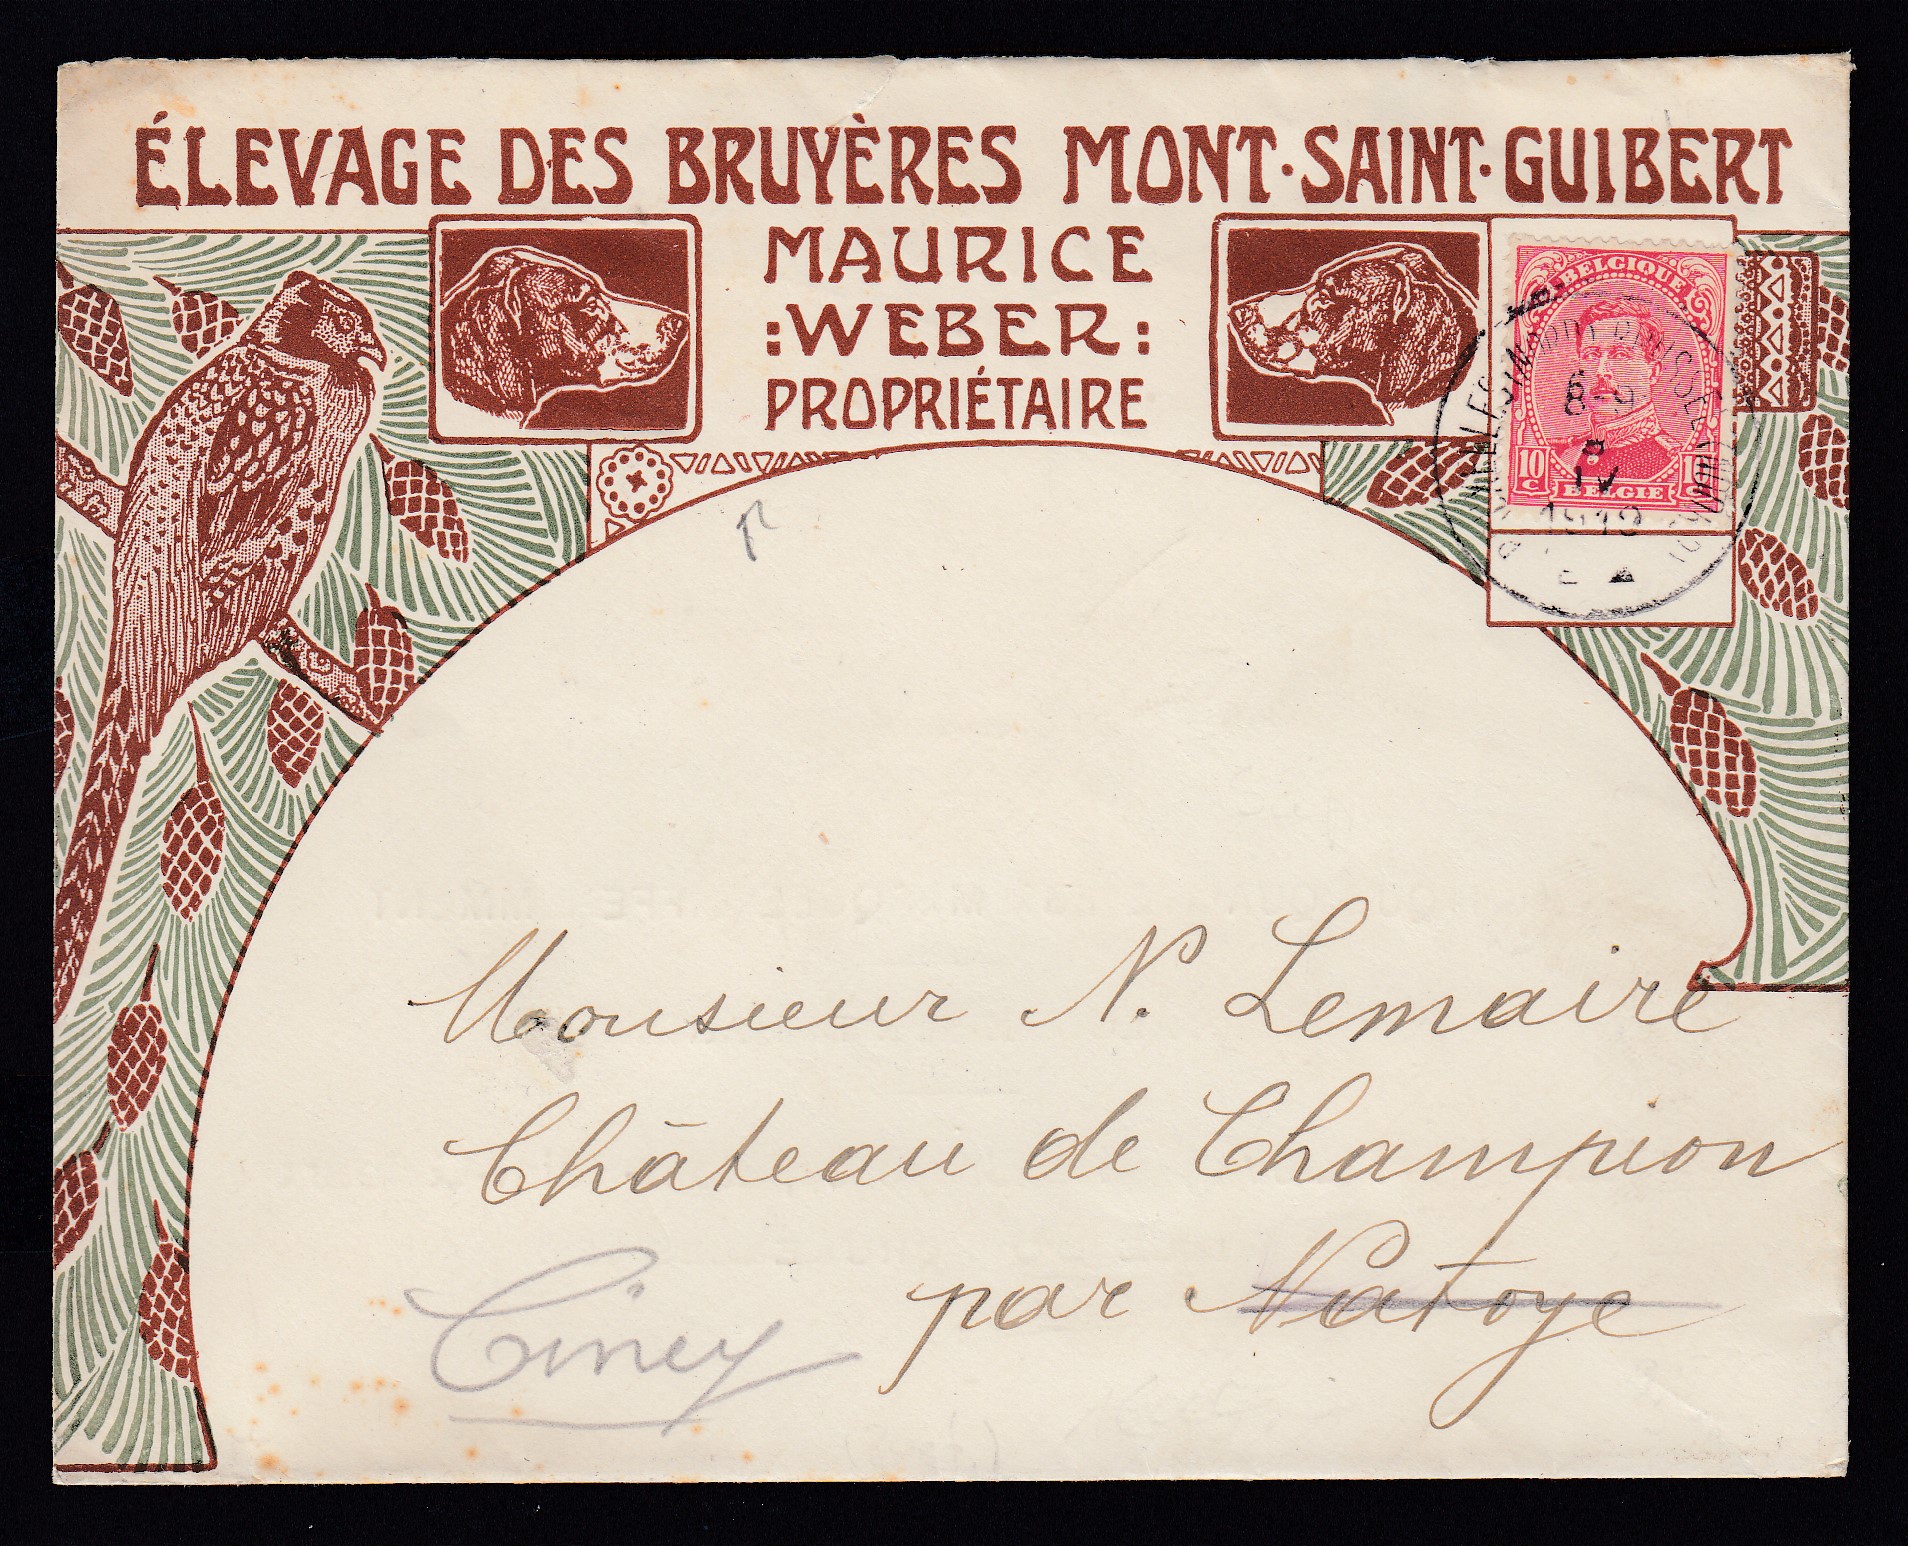 ÉLEVAGE DES BRUYÈRES MONT·SAINT·GUIBERT
MAURICE
:WEBER:
PROPRIÉTAIRE
BELGIQUE
10 C 10 C
BELGIE
8-9
IV
Monsieur N. Lemaire
Château de Champion
par Natoye
Ciney